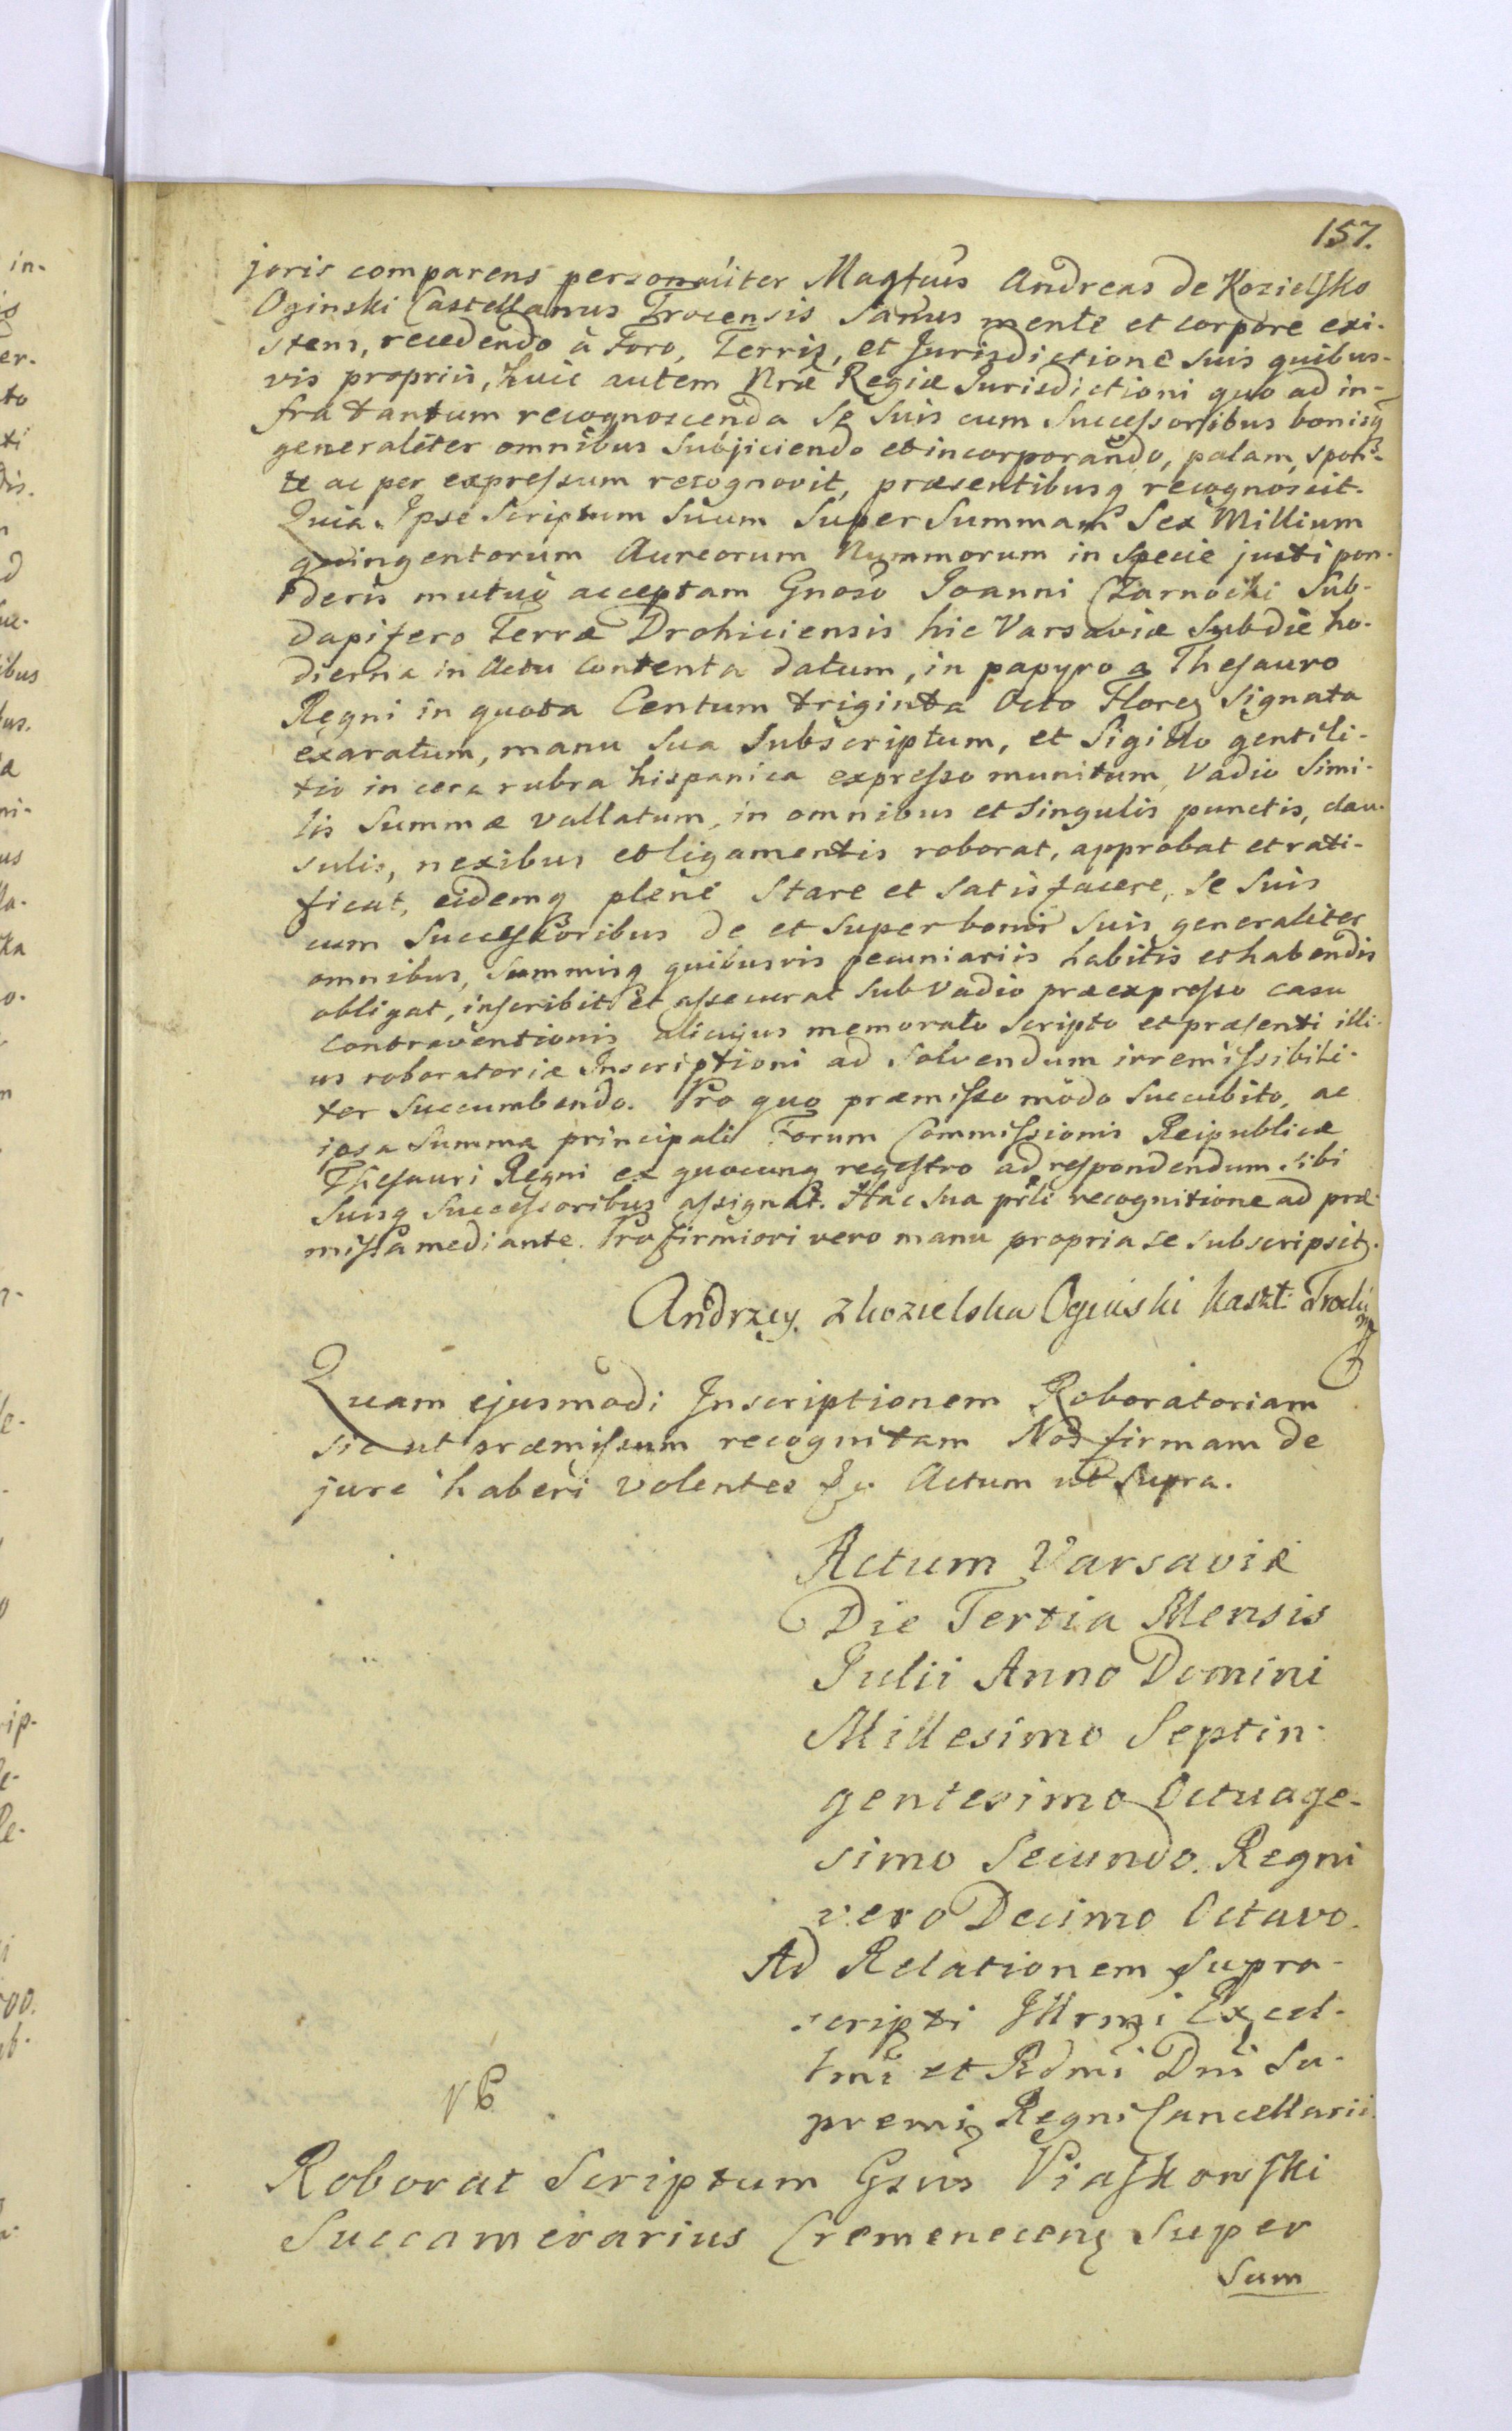 157.
joris comparens personaliter Magfcus Andreas de Kozielsko
Oginski Castellanus Trocensis Sanus mente et corpore exi-
stens, recedendo à Foro, Terris, et Jurisdictione suis quibus-
vis propriis, huic autem Nrae Regiae Jurisdictioni quo ad in-
fra tantum recognoscenda se suis cum Successoribus bonisq
generaliter omnibus Subjiciendo et incorporando, palam, spon-
te ac per expressum recognovit, praesentibusq recognoscit.
Quia Ipse Scriptum Suum Super Summam Sex Millium
quingentorum Aureorum Nummorum in Specie justi pon-
deris mutuo acceptam Gnoso Joanni Czarnocki Sub-
dapifero Terrae Drohiciensis hic Varsaviae Sub die ho-
dierna in Actu Contenta datum, in papyro a Thesauro
Regni in quota Centum triginta Octo Floreg Signata
exaratum, manu Sua Subscriptum, et Sigillo gentili-
tio in cera rubra hispanica expresso munitum, Vadio Simi-
lis Summae vallatum, in omnibus et Singulis punctis, clau-
sulis, nexibus et ligamentis roborat, approbat et rati-
ficat, eidemq plene Stare et Satisfacere, se Suis
cum Successoribus de et Super bonis Suis generaliter
omnibus, Summisq quibusvis pecuniariis habitis et habendis
obligat, inscribit et assecurat Sub Vadio praeexpresso casu
Contraventionis alicujus memorato Scripto et praesenti illi-
us roboratoriae Inscriptioni ad Solvendum irremissibili-
ter Succumbendo. Pro quo praemisso modo Succubito, ac
ipsa Summa principali Forum Commissionis Reipublicae
Thesauri Regni ex quocunq regestro ad respondendum sibi
Suisq Successoribus assignat. Hac Sua prli recognitione ad prae-
missa mediante. Pro firmiori vero manu propria se subscripsit.
Andrzey z Kozielska Oginski Kaszt: Trocki
Quam ejusmodi Inscriptionem Roboratoriam
sic ut praemissum recognitam Nos firmam de
jure haberi volentes Actum ut Supra.
Actum Varsaviae
Die Tertia Mensis
Julii Anno Domini
Millesimo Septin-
gentesimo Octuage-
simo Secundo. Regni
vero Decimo Octavo.
Ad Relationem Supra-
scripti Illrmi Excel-
lmi et Rdmi Dni Su-
premi Regni Cancellarii.
Roborat Scriptum Gsus Piaskowski
Succamerarius Cremenecens Super
Sum